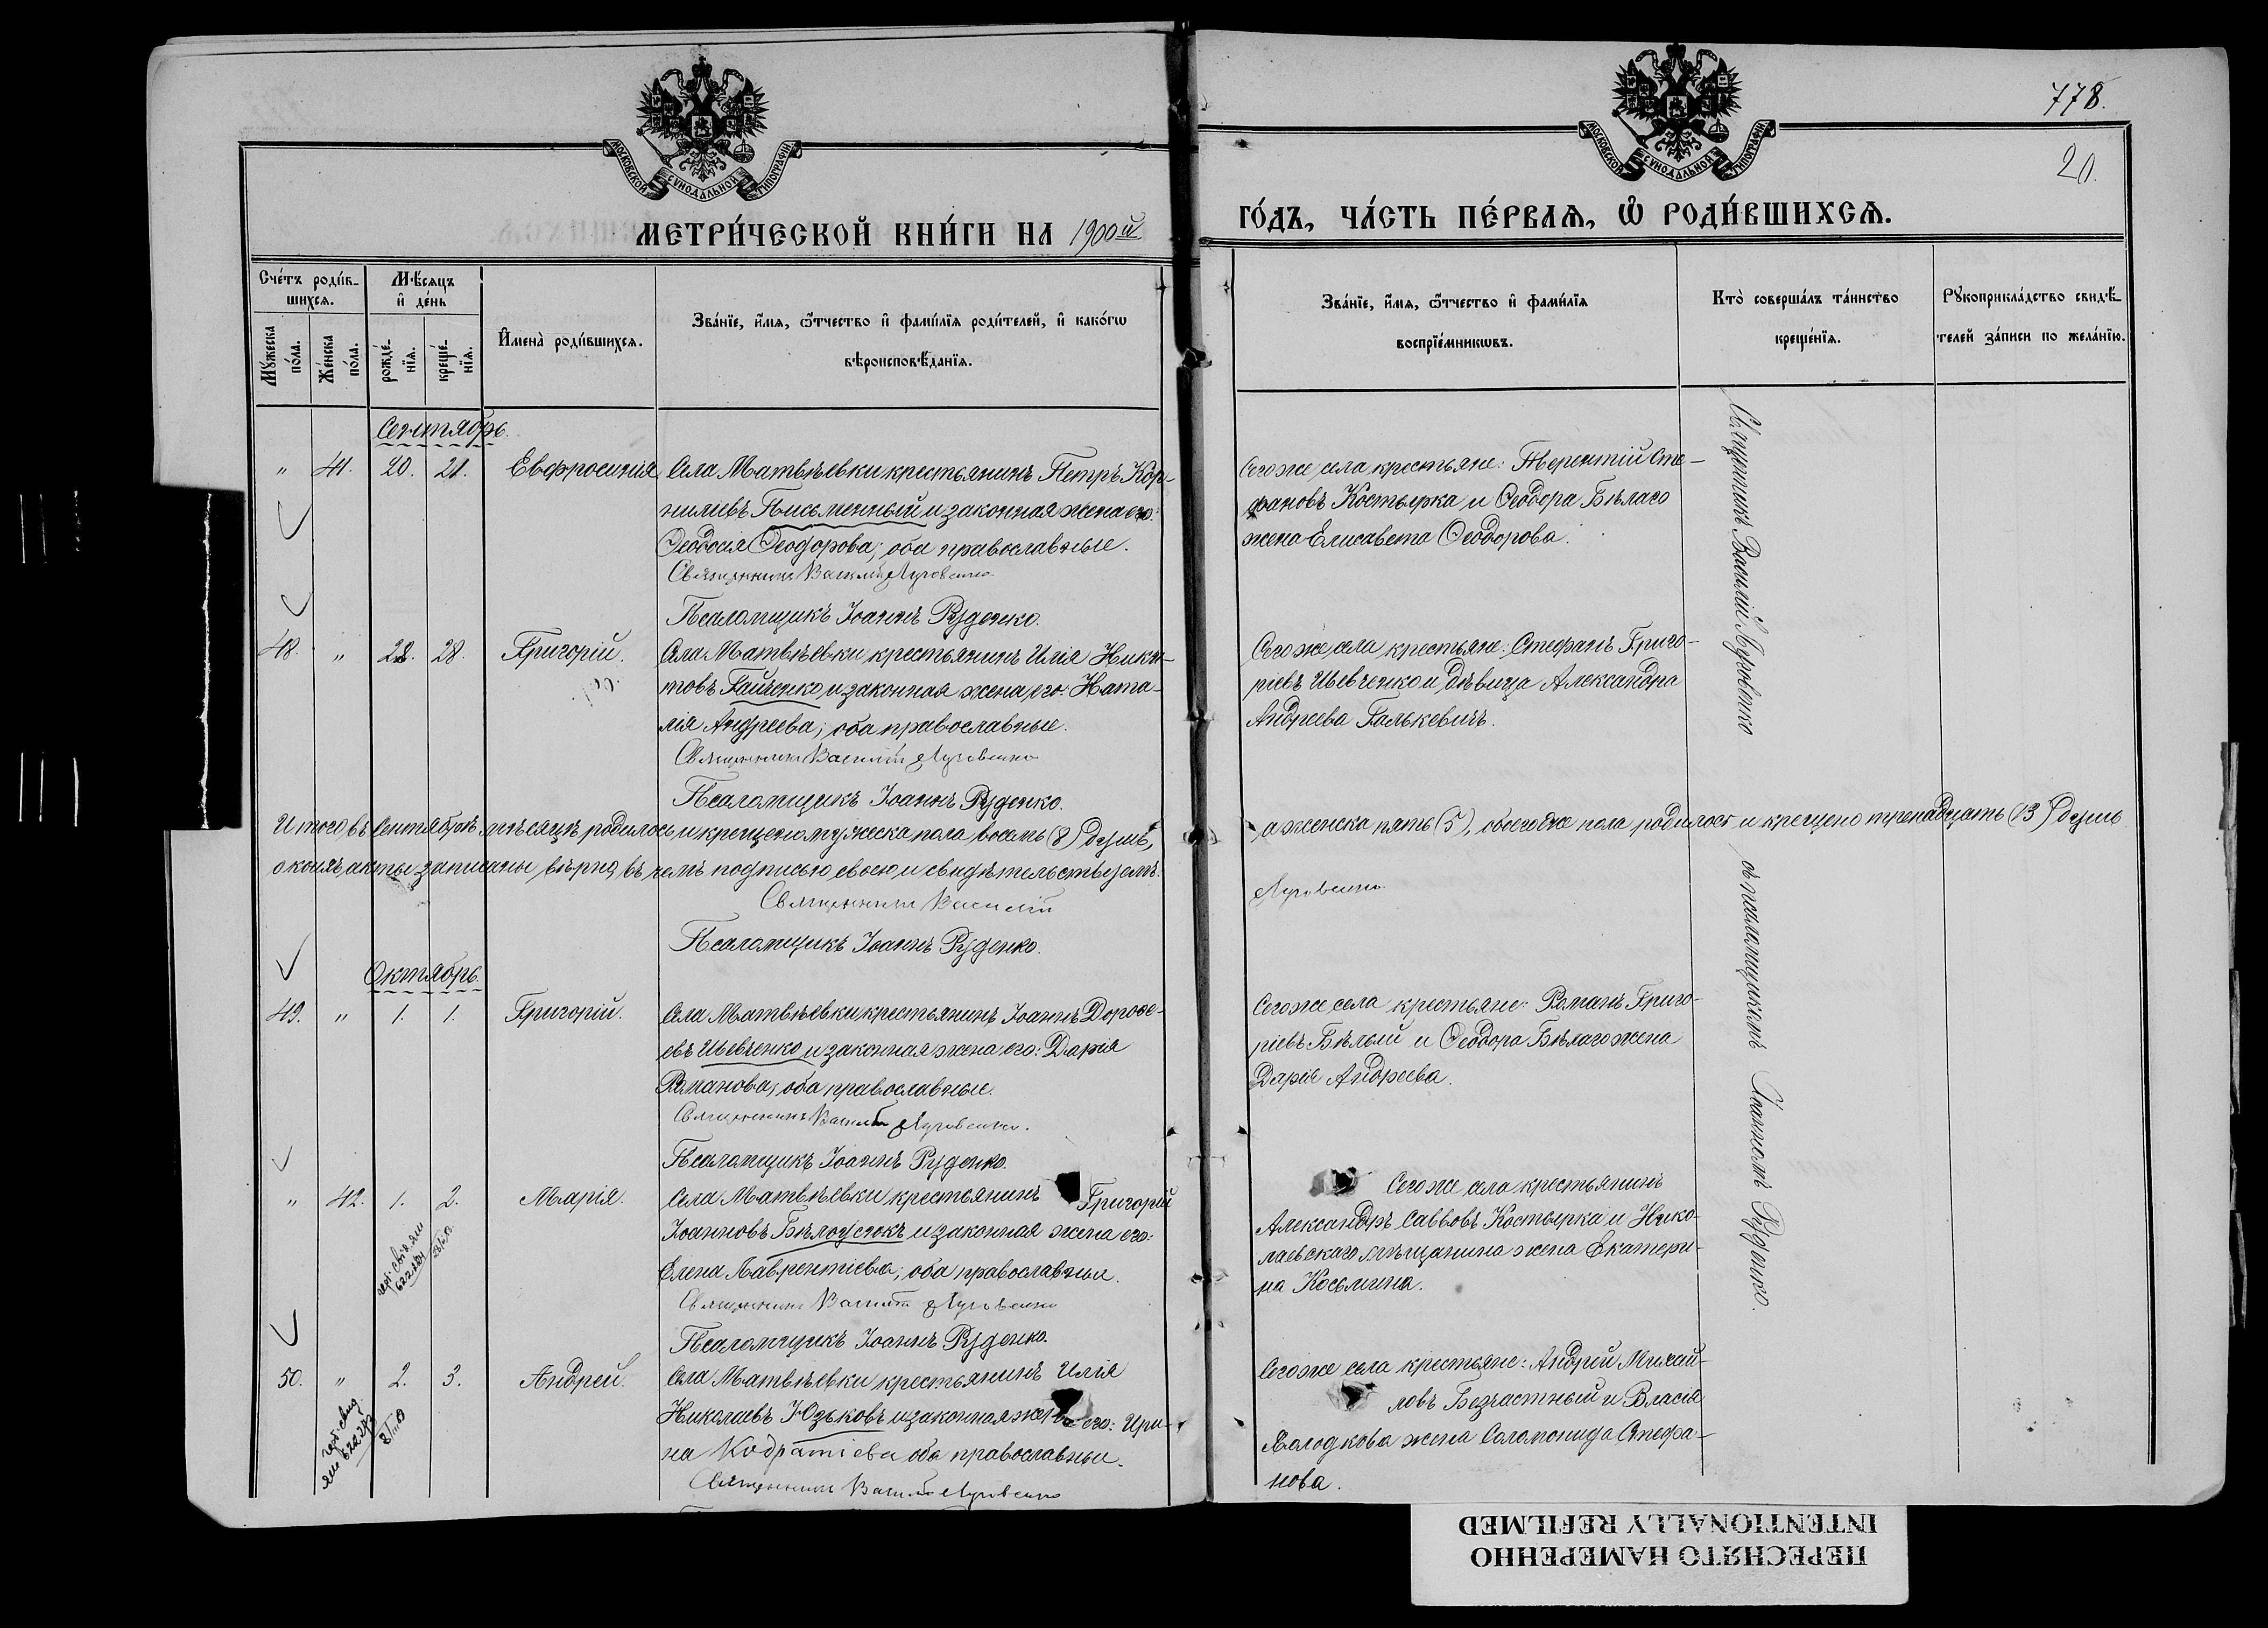 778.
20.
МОСКОВСКОЙ СУНОДАЛЬНОЙ ТИПОГРАФІИ
МОСКОВСКОЙ СУНОДАЛЬНОЙ ТИПОГРАФІИ
МЕТРИ́ЧЕСКОЙ КНИ́ГИ НА 1900й
ГО́ДЪ, ЧА́СТЬ ПЕ́РВАѦ, Ѽ РОДИ́ВШИХСѦ.
Сче́тъ роди́в-
шихсѧ.
Мꙋ́жеска по́ла.
Же́нска по́ла.
Мѣ́сѧцъ
и҆ де́нь
рожде́-
нїѧ.
креще́-
нїѧ.
И҆мена̀ роди́вшихсѧ.
Зва́нїе, и҆́мѧ, ѻ҆́тчество и҆ фамѝлїѧ роди́телей, и҆ како́гѡ
вѣроисповѣ́данїѧ.
Зва́нїе, и҆́мѧ, ѻ҆́тчество и҆ фами́лїѧ
воспрїе́мникѡвъ.
Кто̀ соверша́лъ та́инство
креще́нїѧ.
Рꙋкоприкла́дство свидѣ́-
телей за́писи по жела́нїю.
Сентябрь.
" 41. 20. 21. Евфросинія Села Матвѣевки крестьянинъ Петръ Кор-
нилiевъ Письменный и законная жена его:
Ѳеодосія Ѳеодорова; оба православные.
Священникъ Василій Луговенко
Псаломщикъ Іоаннъ Руденко.
Сего же села крестьяне: Терентій Сте-
фановъ Костырка и Ѳеодора Бѣлаго
жена Елисавета Ѳеодорова.
48. " 28. 28. Григорій. Села Матвѣевки крестьянинъ Илія Ники-
товъ Гайченко и законная жена его: Ната-
лія Андреева; оба православные.
Священникъ Василій Луговенко
Псаломщикъ Іоаннъ Руденко.
Сего же села крестьяне: Стефанъ Григо-
ріевъ Шевченко и дѣвица Александра
Андреева Галькевичъ.
Итого въ Сентябрѣ мѣсяцѣ родилось и крещено мужеска пола восемь (8) душъ,
а женска пять (5), обоего же пола родилось и крещено тренадцать (13) душъ
о коихъ акты записаны вѣрно, въ чемъ подписью своею и свидѣтельствуемъ.
Священникъ Василій
Луговенко
Псаломщикъ Іоаннъ Руденко.
Октябрь.
49. " 1. 1. Григорій. Села Матвѣевки крестьянинъ Іоаннъ Дорофе-
евъ Шевченко и законная жена его: Дарія
Романова; оба православные.
Священникъ Василій Луговенко.
Псаломщикъ Іоаннъ Руденко.
Сего же села крестьяне: Романъ Григо-
ріевъ Бѣлый и Ѳеодора Бѣлаго жена
Дарія Андреева.
" 42. 1. 2. Марія. Села Матвѣевки крестьянинъ Григорій
Іоанновъ Бѣлоусюкъ и законная жена его:
Елена Лаврентіева; оба православные.
Священникъ Василій Луговенко
Псаломщикъ Іоаннъ Руденко.
Сего же села крестьянинъ
Александръ Саввовъ Костырка и Нико-
лаевскаго мѣщанина жена Екатери-
на Косьмина.
50. " 2. 3. Андрей. Села Матвѣевки крестьянинъ Илія
Николаевъ Юзьковъ и законная жена его: Ири-
на Кодратіева оба православные.
Священникъ Василій Луговенко
Сего же села крестьяне: Андрей Михай-
ловъ Безчастный и Власія
Колодкова жена Соломонида Стефа-
нова.
Священникъ Василій Луговенко
съ псаломщикомъ Іоанномъ Руденко.
ПЕРЕСНЯТО НАМЕРЕННО
INTENTIONALLY REFILMED